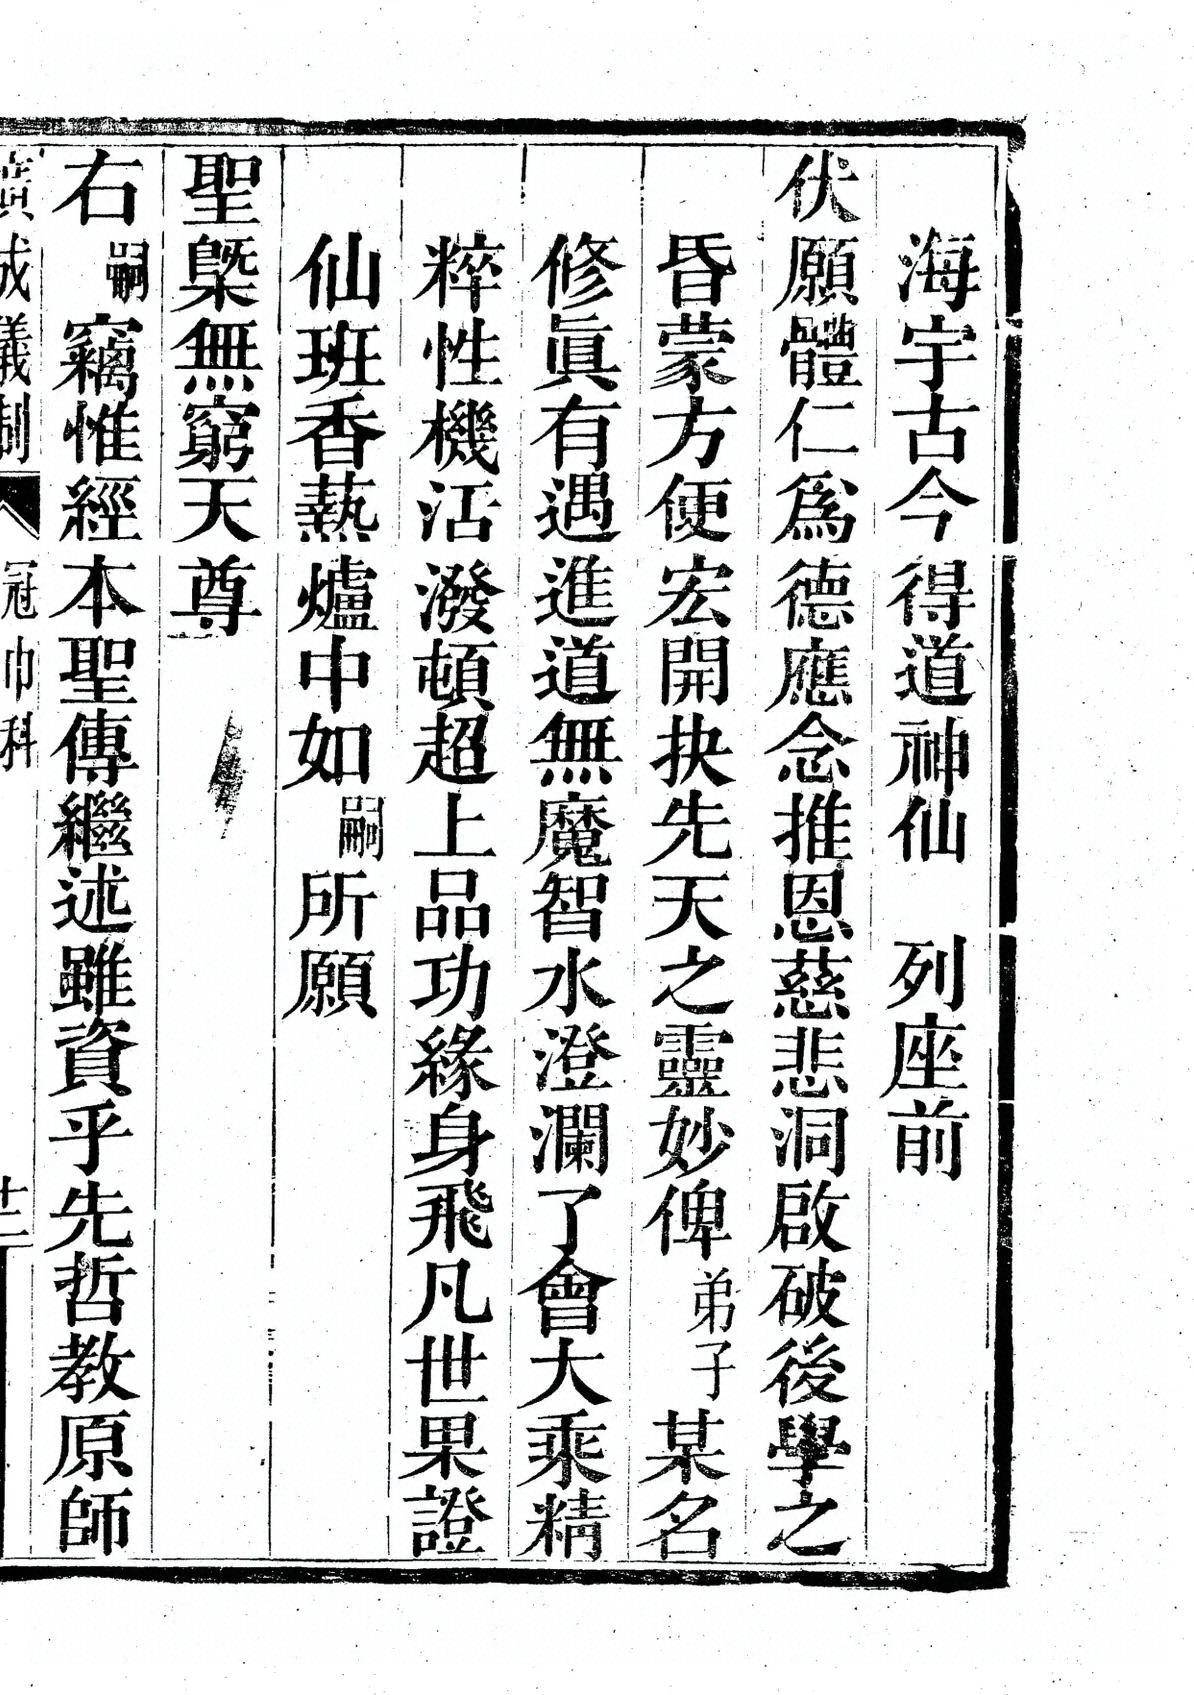 海宇古今得道神仙　列座前
伏願體仁爲德應念推恩慈悲洞啟破後學之
昏蒙方便宏開抉先天之靈妙俾弟子某名
修眞有遇進道無魔智水澄瀾了會大乘精
粹性機活潑頓超上品功緣身飛凡世果證
仙班香爇爐中如嗣所願
聖槩無窮天尊
右嗣竊惟經本聖傳繼述雖資乎先哲教原師
廣成儀制　冠巾科　十二